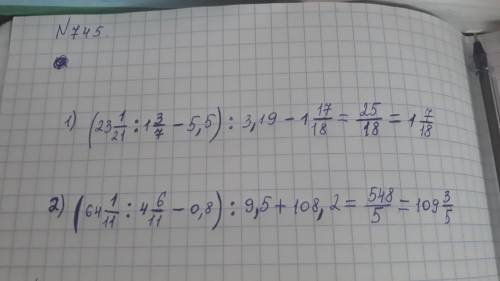 N745.
1) (23 1/21 : 1 3/7 - 5,5) : 3,19 - 1 17/18 = 25/18 = 1 7/18
2) (64 1/11 : 4 6/11 - 0,8) : 9,5 + 108,2 = 548/5 = 109 3/5